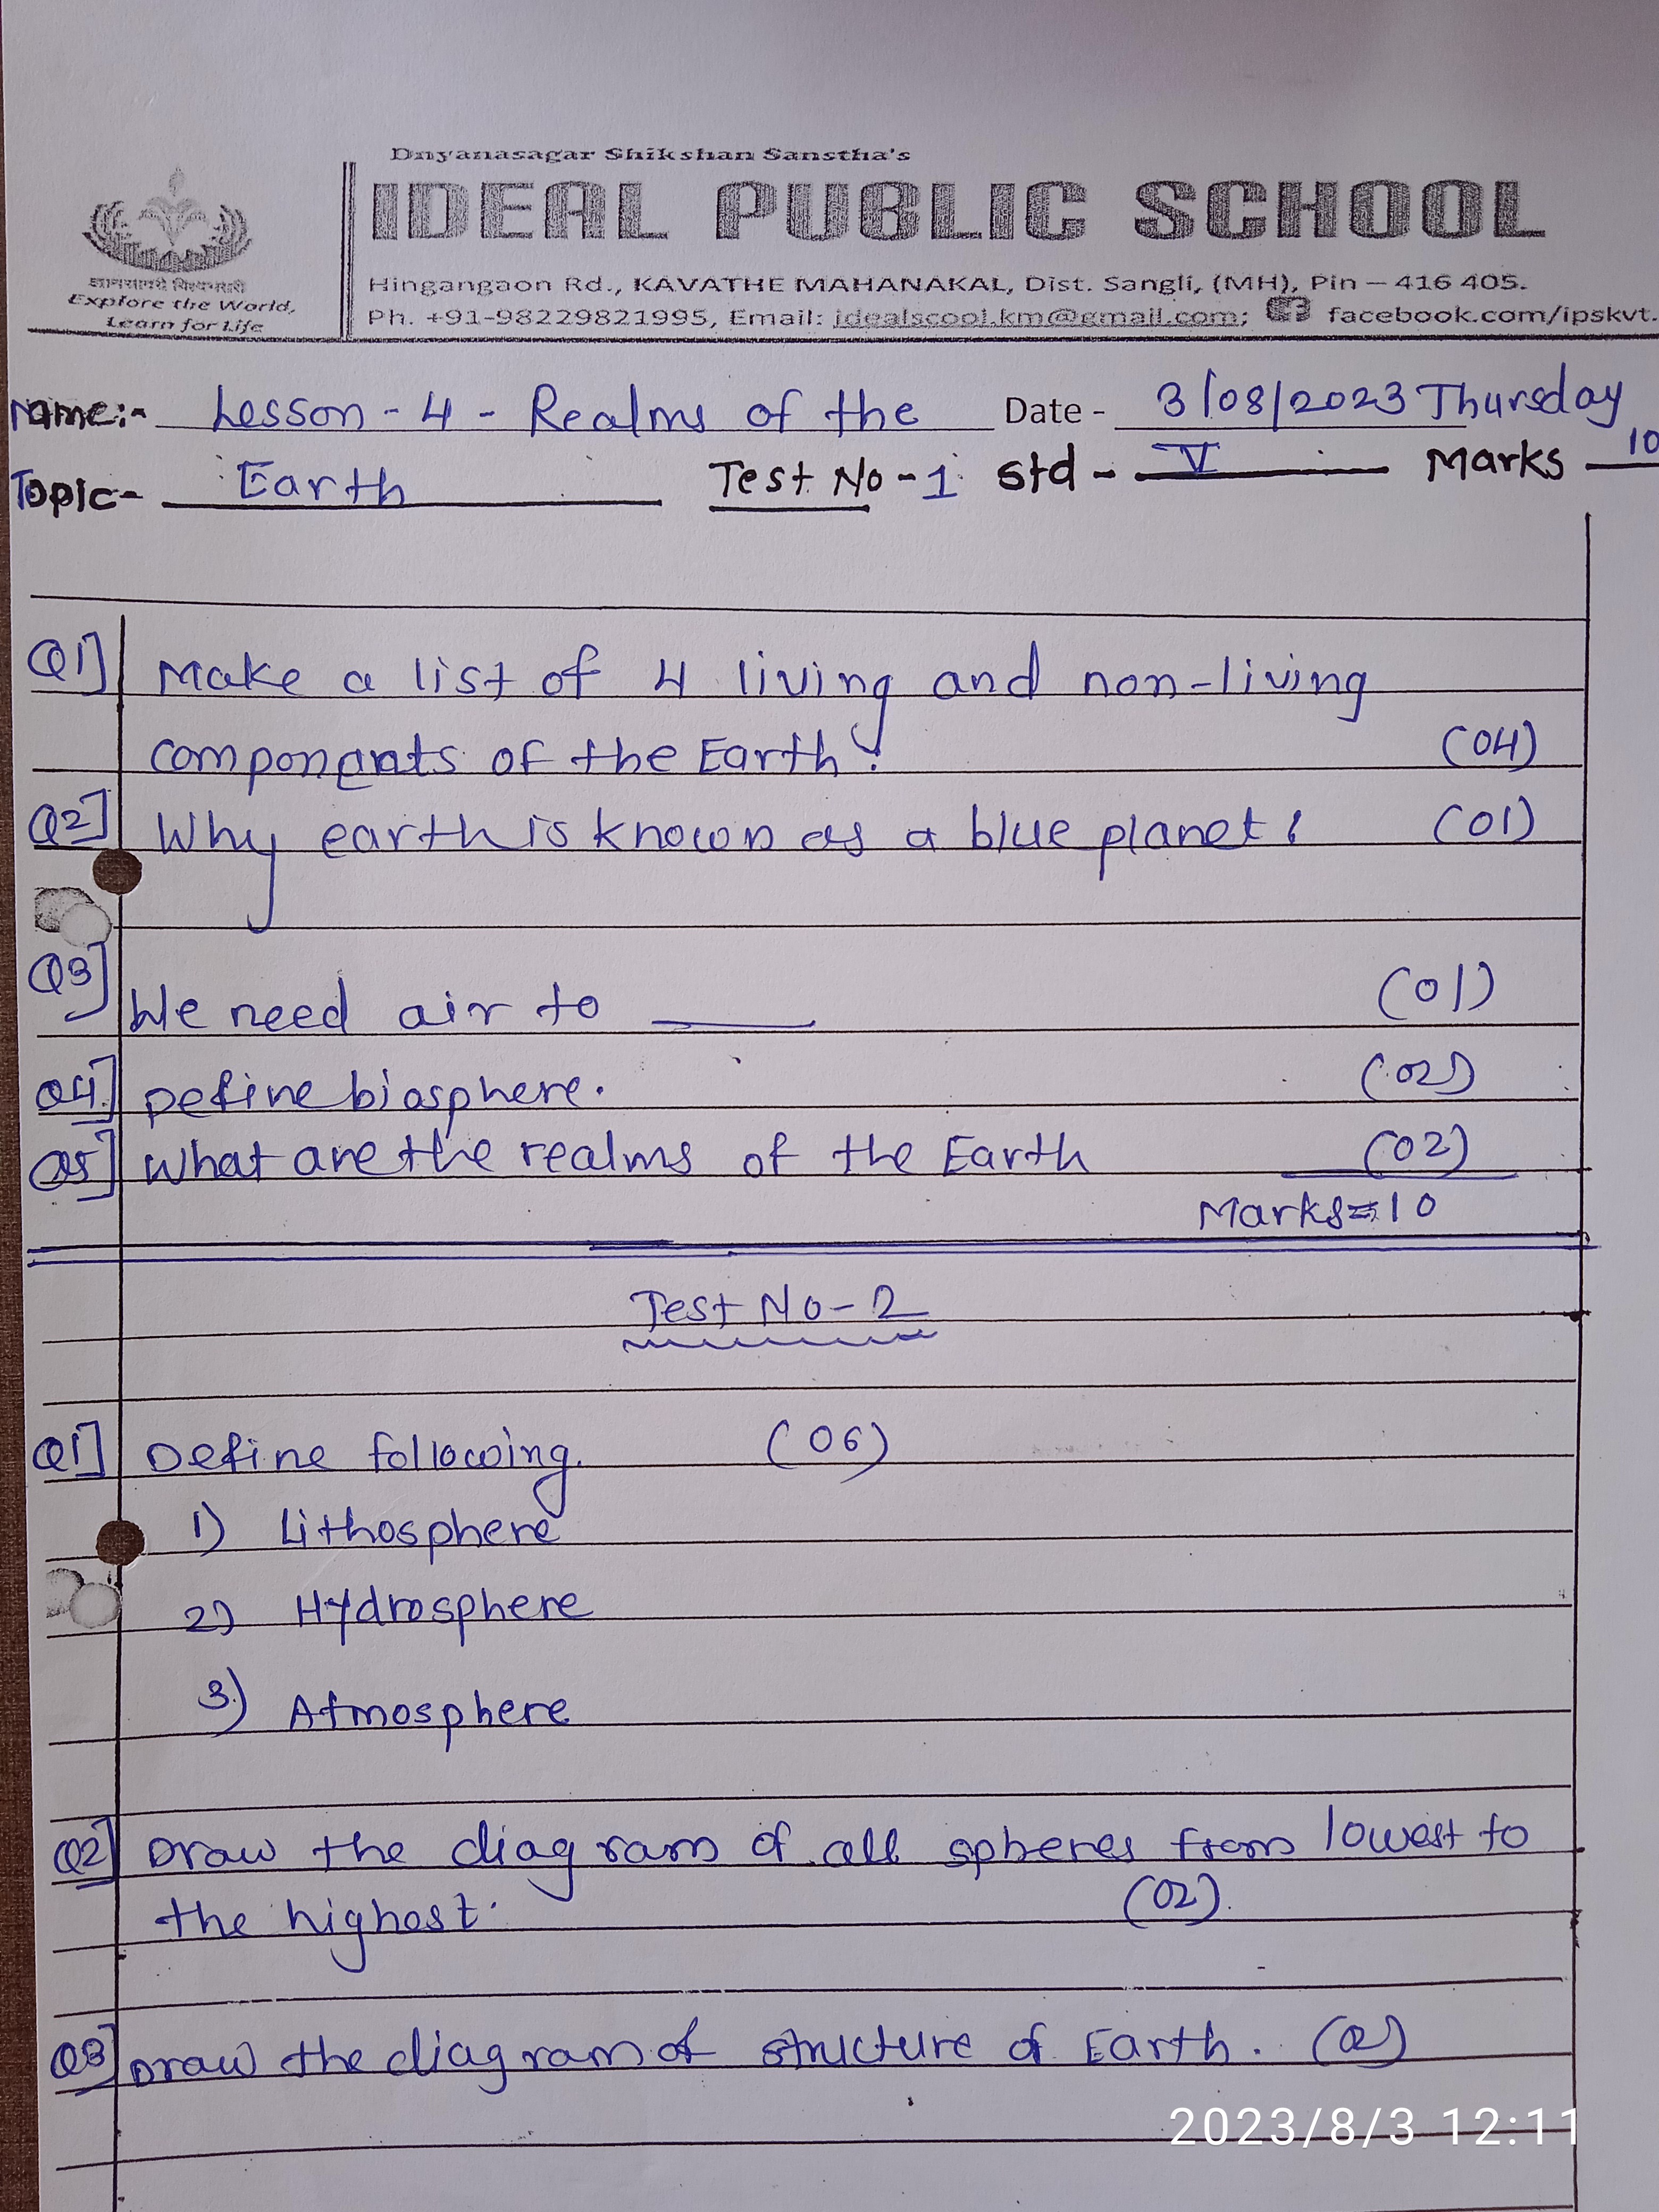 Dnyanasagar Shikshan Sanstha's
IDEAL PUBLIC SCHOOL
Explore the World,
Learn for Life
Hingangaon Rd., KAVATHE MAHANAKAL, Dist. Sangli, (MH), Pin – 416 405.
Ph. +91-98229821995, Email: idealscool.km@gmail.com; facebook.com/ipskvt.
Name:- Lesson - 4 - Realms of the Date - 3/08/2023 Thursday
Topic- Earth Test No -1 Std - V Marks 10
Q1] Make a list of 4 living and non-living
components of the Earth? (04)
Q2] Why earth is known as a blue planet? (01)
Q3] We need air to ____ (01)
Q4] Define biosphere. (02)
Q5] What are the realms of the Earth (02)
Marks=10
Test No-2
Q1] Define following. (06)
1) Lithosphere
2) Hydrosphere
3) Atmosphere
Q2] Draw the diagram of all spheres from lowest to
the highest. (02)
Q3] Draw the diagram of structure of Earth. (2)
2023/8/3 12:11